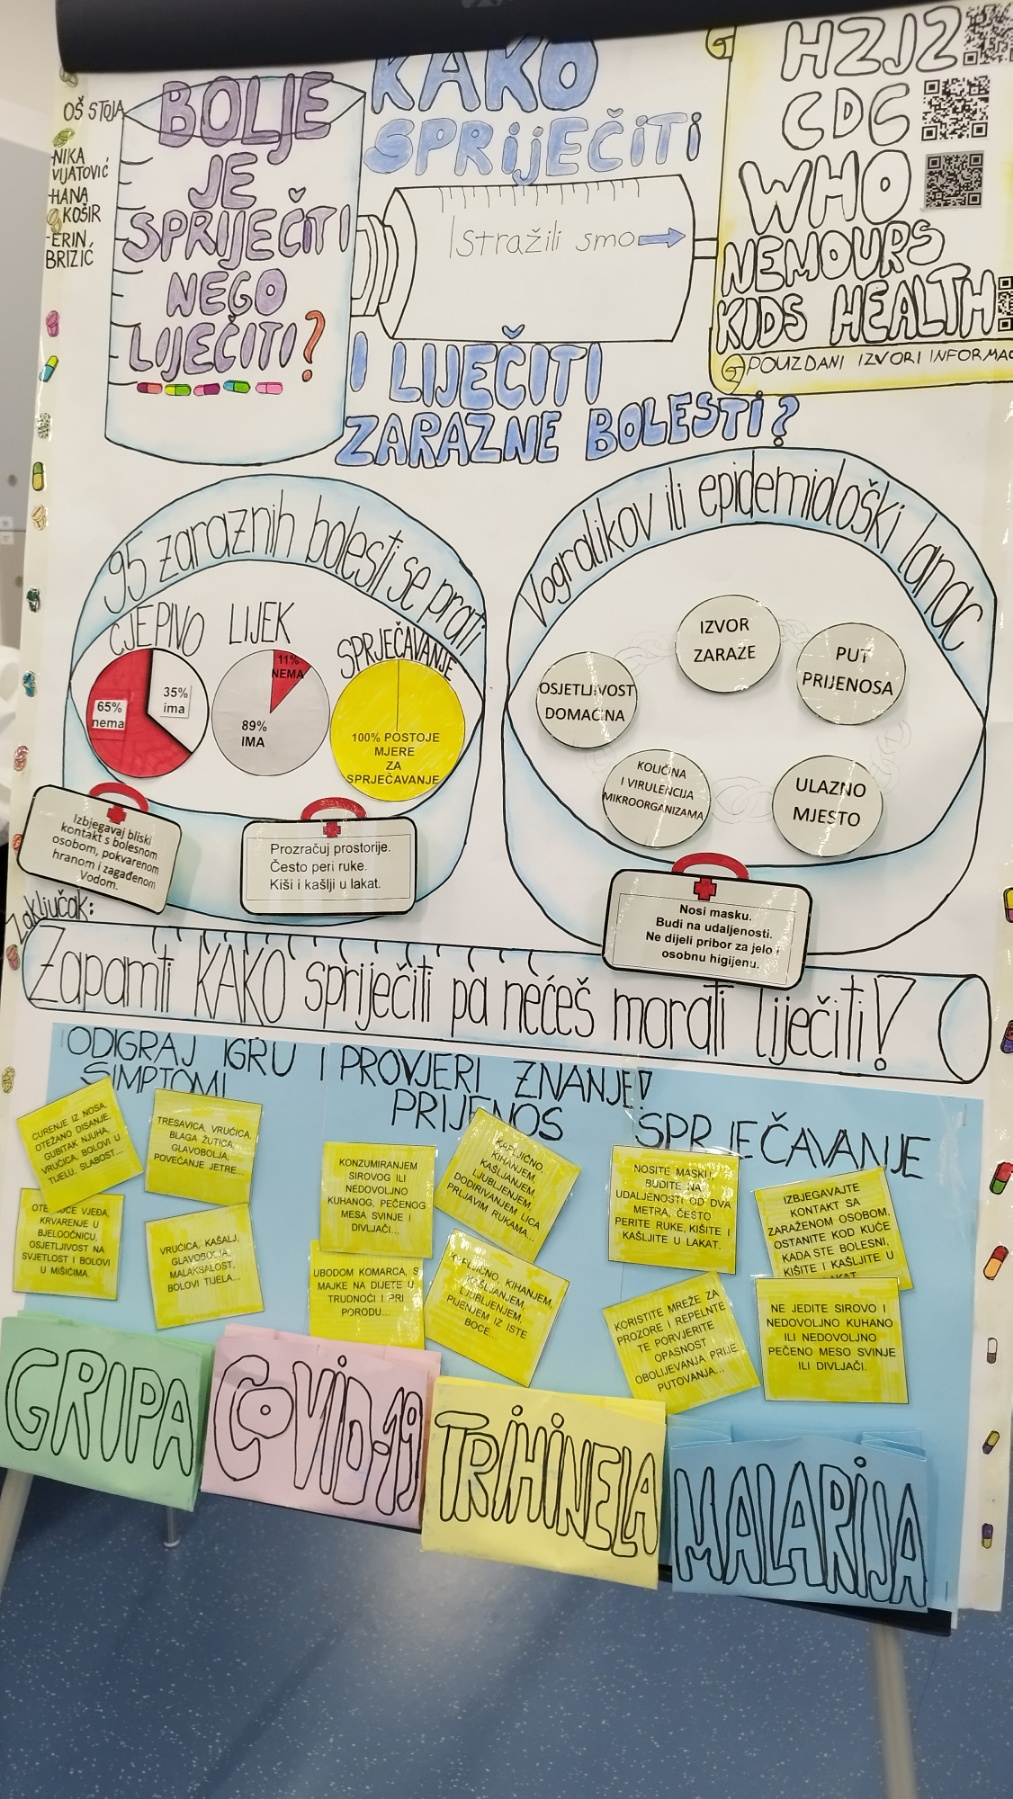 OŠ STOJA
-NIKA
VIJATOVIĆ
-HANA
KOŠIR
-ERIN
BRIZIĆ
BOLJE
JE
SPRIJEČITI
NEGO
LIJEČITI?
KAKO
SPRIJEČITI
Istražili smo
I LIJEČITI
ZARAZNE BOLESTI?
HZJZ
CDC
WHO
NEMOURS
KIDS HEALTH
POUZDANI IZVORI INFORMAC
95 zaraznih bolesti se prati
CJEPIVO
65%
nema
35%
ima
LIJEK
11%
NEMA
89%
IMA
SPRJEČAVANJE
100% POSTOJE
MJERE
ZA
SPRJEČAVANJE
Vogralikov ili epidemiološki lanac
IZVOR
ZARAZE
PUT
PRIJENOSA
ULAZNO
MJESTO
KOLIČINA
I VIRULENCIJA
MIKROORGANIZAMA
OSJETLJIVOST
DOMAĆINA
Izbjegavaj bliski
kontakt s bolesnom
osobom, pokvarenom
hranom i zagađenom
Vodom.
Prozračuj prostorije.
Često peri ruke.
Kiši i kašlji u lakat.
Nosi masku.
Budi na udaljenosti.
Ne dijeli pribor za jelo i
osobnu higijenu.
Zaključak:
Zapamti KAKO spriječiti pa nećeš morati liječiti!
ODIGRAJ IGRU I PROVJERI ZNANJE!
SIMPTOMI
CURENJE IZ NOSA,
OTEŽANO DISANJE,
GUBITAK NJUHA,
VRUĆICA, BOLOVI U
TIJELU, SLABOST...
TRESAVICA, VRUĆICA,
BLAGA ŽUTICA,
GLAVOBOLJA,
POVEĆANJE JETRE...
VJEĐA,
KRVARENJE U
BJELOOČNICU,
OSJETLJIVOST NA
SVJETLOST I BOLOVI
U MIŠIĆIMA.
VRUĆICA, KAŠALJ,
GLAVOBOLJA,
MALAKSALOST,
BOLOVI TIJELA...
PRIJENOS
KONZUMIRANJEM
SIROVOG ILI
NEDOVOLJNO
KUHANOG, PEČENOG
MESA SVINJE I
DIVLJAČI...
KAPLJIČNO,
KIHANJEM,
KAŠLJANJEM,
LJUBLJENJEM,
DODIRIVANJEM LICA
PRLJAVIM RUKAMA...
UBODOM KOMARCA, S
MAJKE NA DIJETE U
TRUDNOĆI I PRI
PORODU...
KAPLJIČNO, KIHANJEM,
KAŠLJANJEM,
LJUBLJENJEM,
PIJENJEM IZ ISTE
BOCE...
SPRJEČAVANJE
NOSITE MASKU,
BUDITE NA
UDALJENOSTI OD DVA
METRA, ČESTO
PERITE RUKE, KIŠITE I
KAŠLJITE U LAKAT.
IZBJEGAVAJTE
KONTAKT SA
ZARAŽENOM OSOBOM,
OSTANITE KOD KUĆE
KADA STE BOLESNI,
KIŠITE I KAŠLJITE U
LAKAT.
KORISTITE MREŽE ZA
PROZORE I REPELNTE
TE PORVJERITE
OPASNOST
OBOLIJEVANJA PRIJE
PUTOVANJA...
NE JEDITE SIROVO I
NEDOVOLJNO KUHANO
ILI NEDOVOLJNO
PEČENO MESO SVINJE
ILI DIVLJAČI.
GRIPA
COVID-19
TRIHINELA
MALARIJA